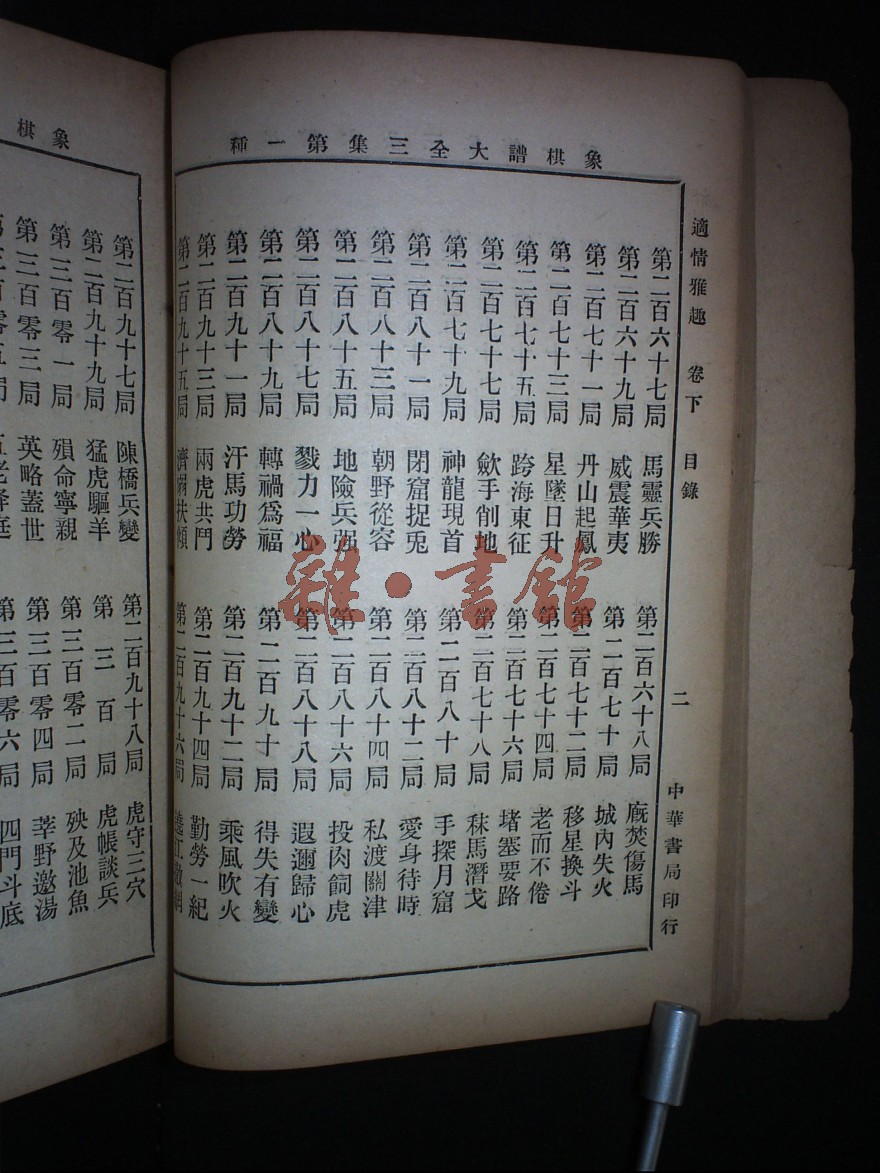 象棋譜大全三集第一種
適情雅趣 卷下 目錄 二 中華書局印行
第二百六十七局 馬靈兵勝 第二百六十八局 廐焚傷馬
第二百六十九局 威震華夷 第二百七十局 城內失火
第二百七十一局 丹山起鳳 第二百七十二局 移星換斗
第二百七十三局 星墜日升 第二百七十四局 老而不倦
第二百七十五局 跨海東征 第二百七十六局 堵塞要路
第二百七十七局 斂手削地 第二百七十八局 秣馬潛戈
第二百七十九局 神龍現首 第二百八十局 手探月窟
第二百八十一局 閉窟捉兎 第二百八十二局 愛身待時
第二百八十三局 朝野從容 第二百八十四局 私渡關津
第二百八十五局 地險兵强 第二百八十六局 投肉飼虎
第二百八十七局 戮力一心 第二百八十八局 遐邇歸心
第二百八十九局 轉禍爲福 第二百九十局 得失有變
第二百九十一局 汗馬功勞 第二百九十二局 乘風吹火
第二百九十三局 兩虎共鬥 第二百九十四局 勤勞一紀
第二百九十五局 濟弱扶傾 第二百九十六局
雜·書館
象棋
第二百九十七局 陳橋兵變 第二百九十八局 虎守三穴
第二百九十九局 猛虎驅羊 第三百局 虎帳談兵
第三百零一局 殞命寧親 第三百零二局 殃及池魚
第三百零三局 英略蓋世 第三百零四局 莘野邀湯
第三百零五局 五老降庭 第三百零六局 四門斗底